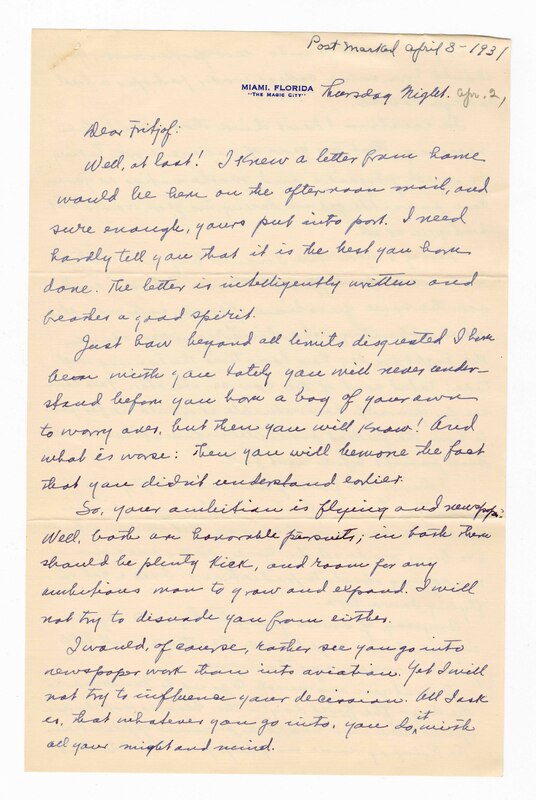 Post marked april 3 - 1931
MIAMI, FLORIDA
"THE MAGIC CITY"
Thursday Night. apr. 2,
Dear Fritjof:
Well, at last! I knew a letter from home
would be here on the afternoon mail, and
sure enough, yours put into port. I need
hardly tell you that it is the best you have
done. The letter is intelligently written and
breathes a good spirit.
Just how beyond all limits disgusted I have
been with you lately you will never under-
stand before you have a boy of your own
to worry over, but then you will know! And
what is worse: then you will bemone the fact
that you didn't understand earlier.
So, your ambition is flying and newspaper?
Well, both are honorable pursuits; in both there
should be plenty kick, and room for any
ambitious man to grow and expand. I will
not try to disuade you from either.
I would, of course, rather see you go into
newspaper work than into aviation. Yet I will
not try to influence your decission. All I ask
is, that whatever you go into, you do it with
all your might and mind.